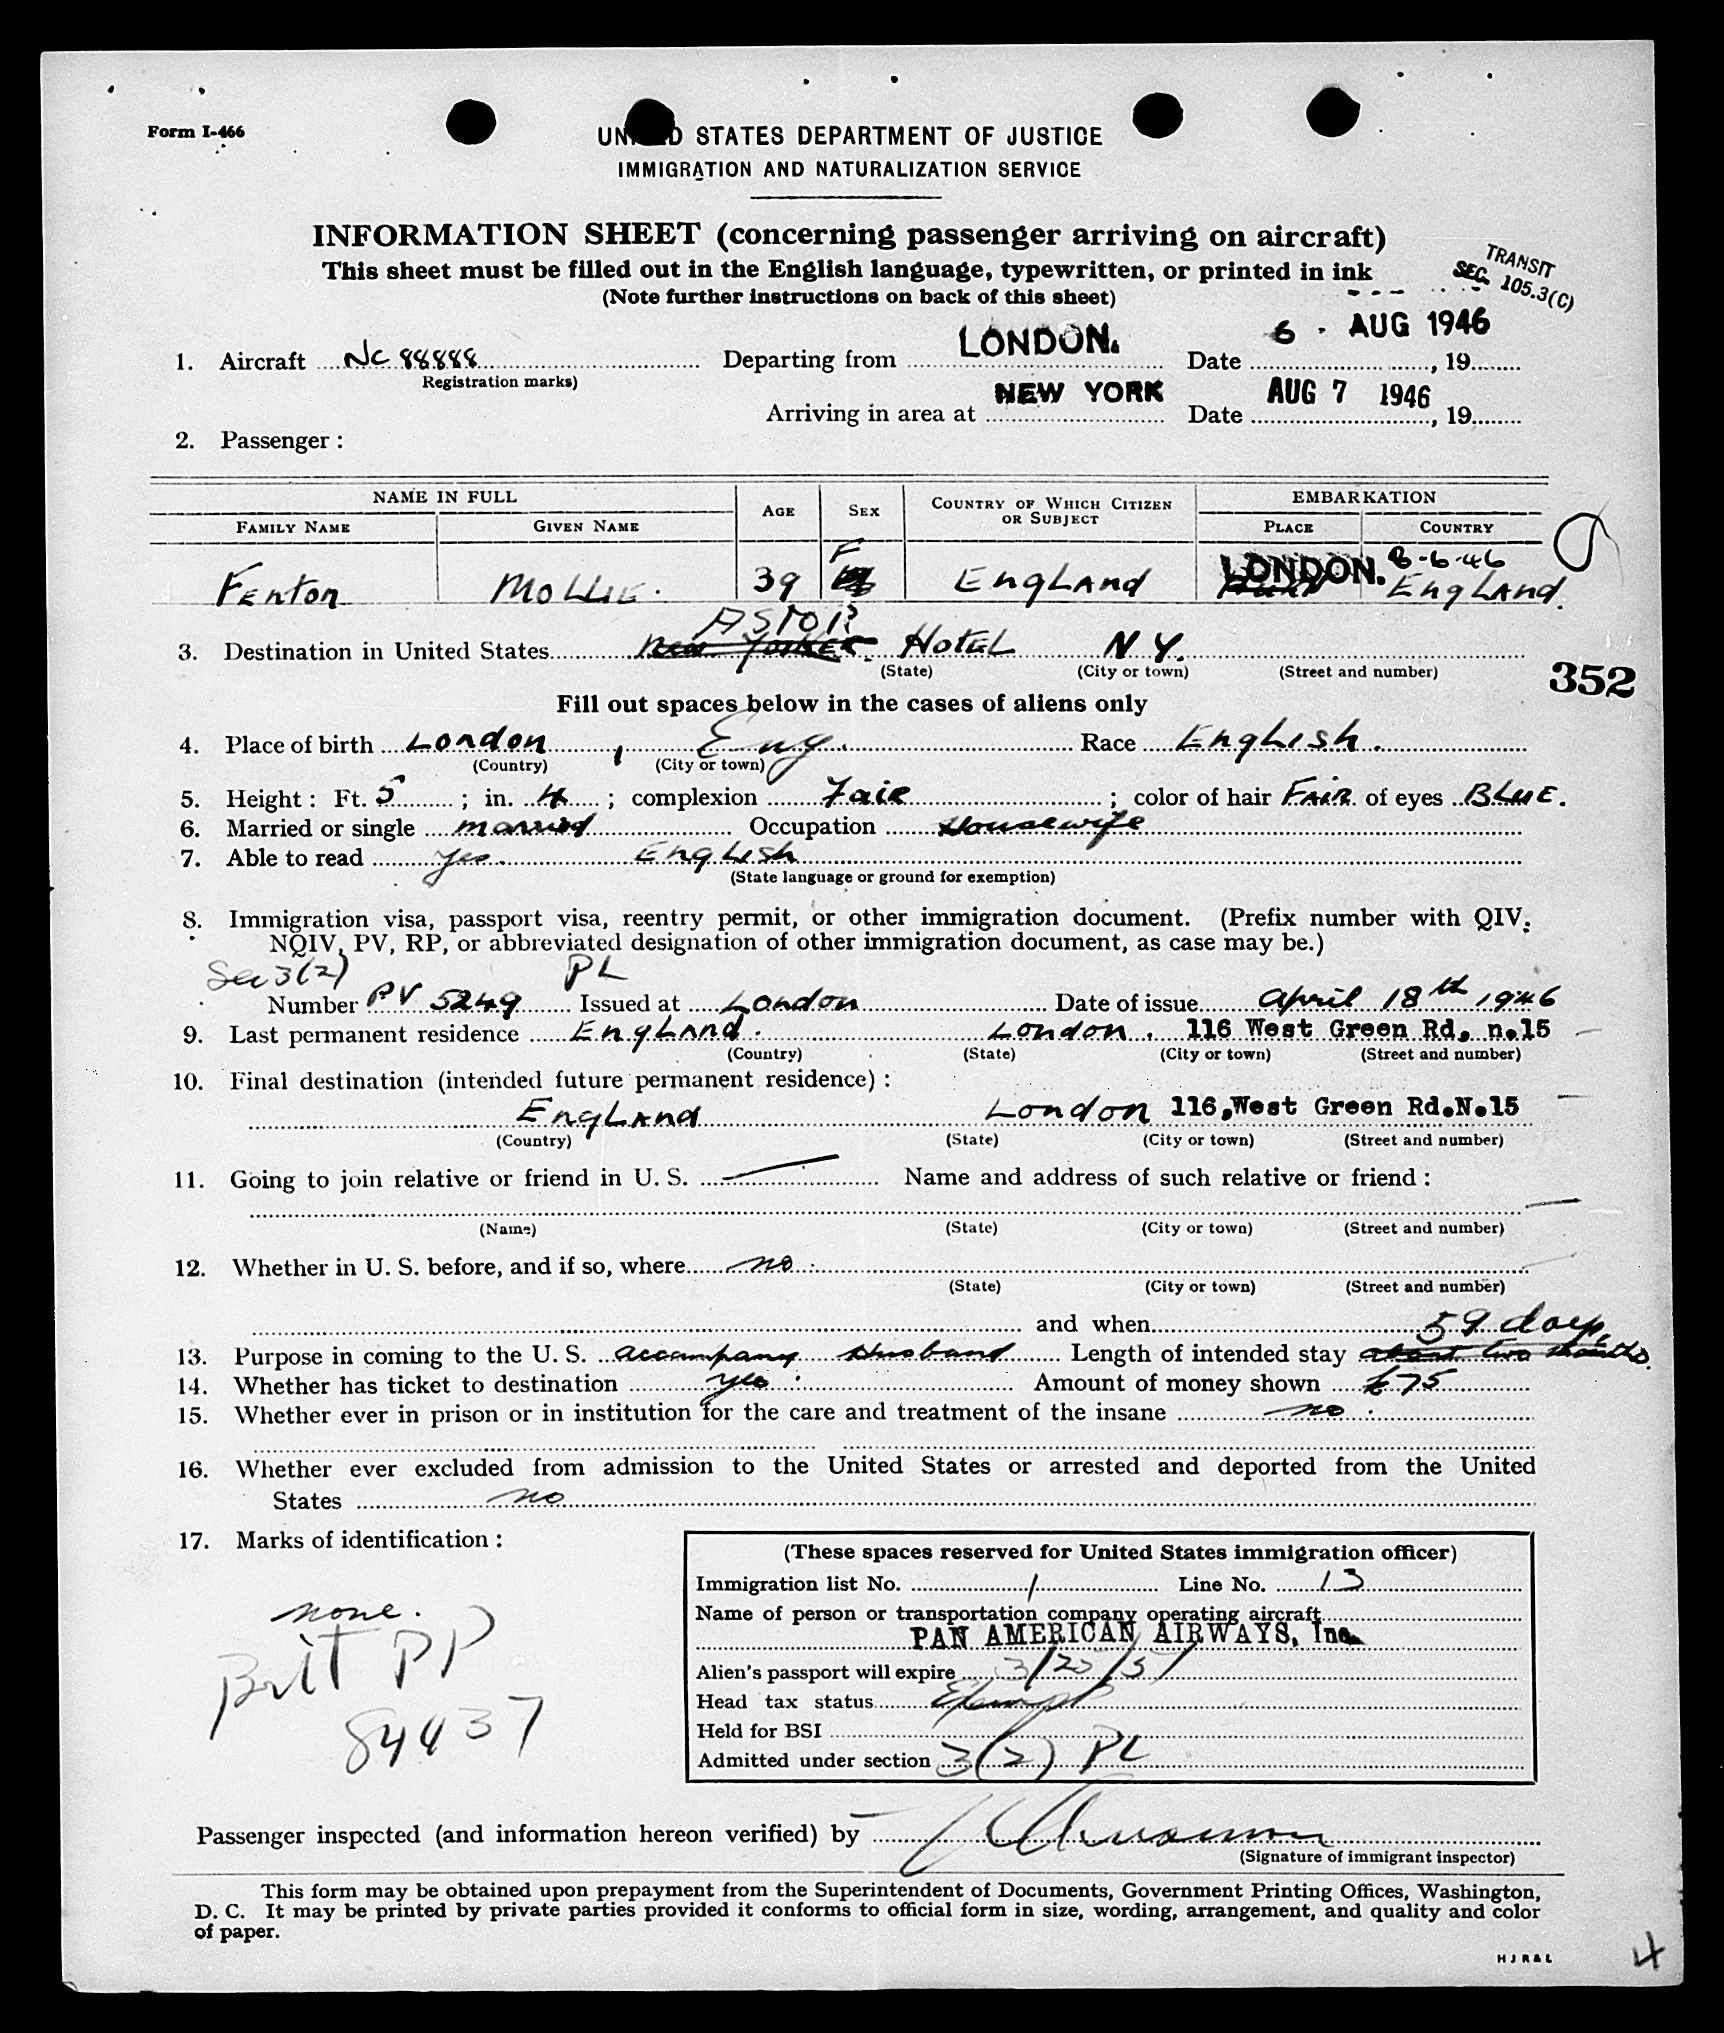 Form I-466
UNITED STATES DEPARTMENT OF JUSTICE
IMMIGRATION AND NATURALIZATION SERVICE
INFORMATION SHEET (concerning passenger arriving on aircraft)
This sheet must be filled out in the English language, typewritten, or printed in ink
(Note further instructions on back of this sheet)
TRANSIT
SEC. 105.3(C)
1. Aircraft NC 88888 Departing from LONDON. Date 6 AUG 1946, 19
(Registration marks)
Arriving in area at NEW YORK Date AUG 7 1946, 19
2. Passenger:
NAME IN FULL AGE SEX COUNTRY OF WHICH CITIZEN OR SUBJECT EMBARKATION
FAMILY NAME GIVEN NAME PLACE COUNTRY
8-6-46
FENTON MOLLIE. 39 F ENGLAND LONDON. ENGLAND.
ASTOR
3. Destination in United States New Yorker. HOTEL N Y.
(State) (City or town) (Street and number)
352
Fill out spaces below in the cases of aliens only
4. Place of birth London, Eng. Race English.
(Country) (City or town)
5. Height: Ft. 5; in. 4; complexion Fair; color of hair FAIR. of eyes BLUE.
6. Married or single married Occupation Housewife
7. Able to read yes. English
(State language or ground for exemption)
8. Immigration visa, passport visa, reentry permit, or other immigration document. (Prefix number with QIV,
NQIV, PV, RP, or abbreviated designation of other immigration document, as case may be.)
Sec 3(2) PL
Number PV 5249 Issued at London Date of issue April 18th 1946
9. Last permanent residence England. London. 116 West Green Rd, n.15
(Country) (State) (City or town) (Street and number)
10. Final destination (intended future permanent residence):
England London 116,West Green Rd.N.15
(Country) (State) (City or town) (Street and number)
11. Going to join relative or friend in U. S. — Name and address of such relative or friend:
(Name) (State) (City or town) (Street and number)
12. Whether in U. S. before, and if so, where no.
(State) (City or town) (Street and number)
and when
59 days
13. Purpose in coming to the U. S. accompany Husband Length of intended stay about two months.
14. Whether has ticket to destination yes. Amount of money shown £75
15. Whether ever in prison or in institution for the care and treatment of the insane no.
16. Whether ever excluded from admission to the United States or arrested and deported from the United
States no
17. Marks of identification:
none.
Brit PP
84437
(These spaces reserved for United States immigration officer)
Immigration list No. 1 Line No. 13
Name of person or transportation company operating aircraft
PAN AMERICAN AIRWAYS, Inc.
Alien's passport will expire 3/20/51
Head tax status Exempt
Held for BSI
Admitted under section 3(2) PL
Passenger inspected (and information hereon verified) by
(Signature of immigrant inspector)
This form may be obtained upon prepayment from the Superintendent of Documents, Government Printing Offices, Washington,
D. C. It may be printed by private parties provided it conforms to official form in size, wording, arrangement, and quality and color
of paper.
H J R & L
4